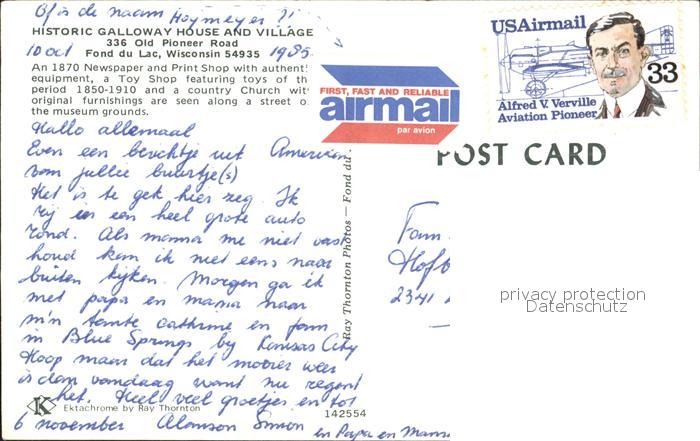 Of is de naam Heymeyer ?!
HISTORIC GALLOWAY HOUSE AND VILLAGE
336 Old Pioneer Road
10 oct Fond du Lac, Wisconsin 54935 1985
An 1870 Newspaper and Print Shop with authent
equipment, a Toy Shop featuring toys of th
period 1850-1910 and a country Church wit
original furnishings are seen along a street o
the museum grounds.
Hallo allemaal
Even een berichtje uit Amerika
van jullie buurtje(s)
Het is te gek hier zeg. Ik
rij in een heel grote auto
rond. Als mama me niet vast
houd kan ik niet eens naar
buiten kijken. Morgen ga ik
met papa en mama naar
m'n tante Cathrine en
in Blue Springs by Kansas City
Hoop maar dat het mooier weer
is dan vandaag want nu regent
het. Heel veel groetjes en tot
6 november Simon
en Papa en Mama
K
Ektachrome by Ray Thornton
142554
Ray Thornton Photos — Fond du
FIRST, FAST AND RELIABLE
airmail
par avion
USAirmail
33
Alfred V. Verville
Aviation Pioneer
POST CARD
Fam.
Hofb
2341
privacy protection
Datenschutz